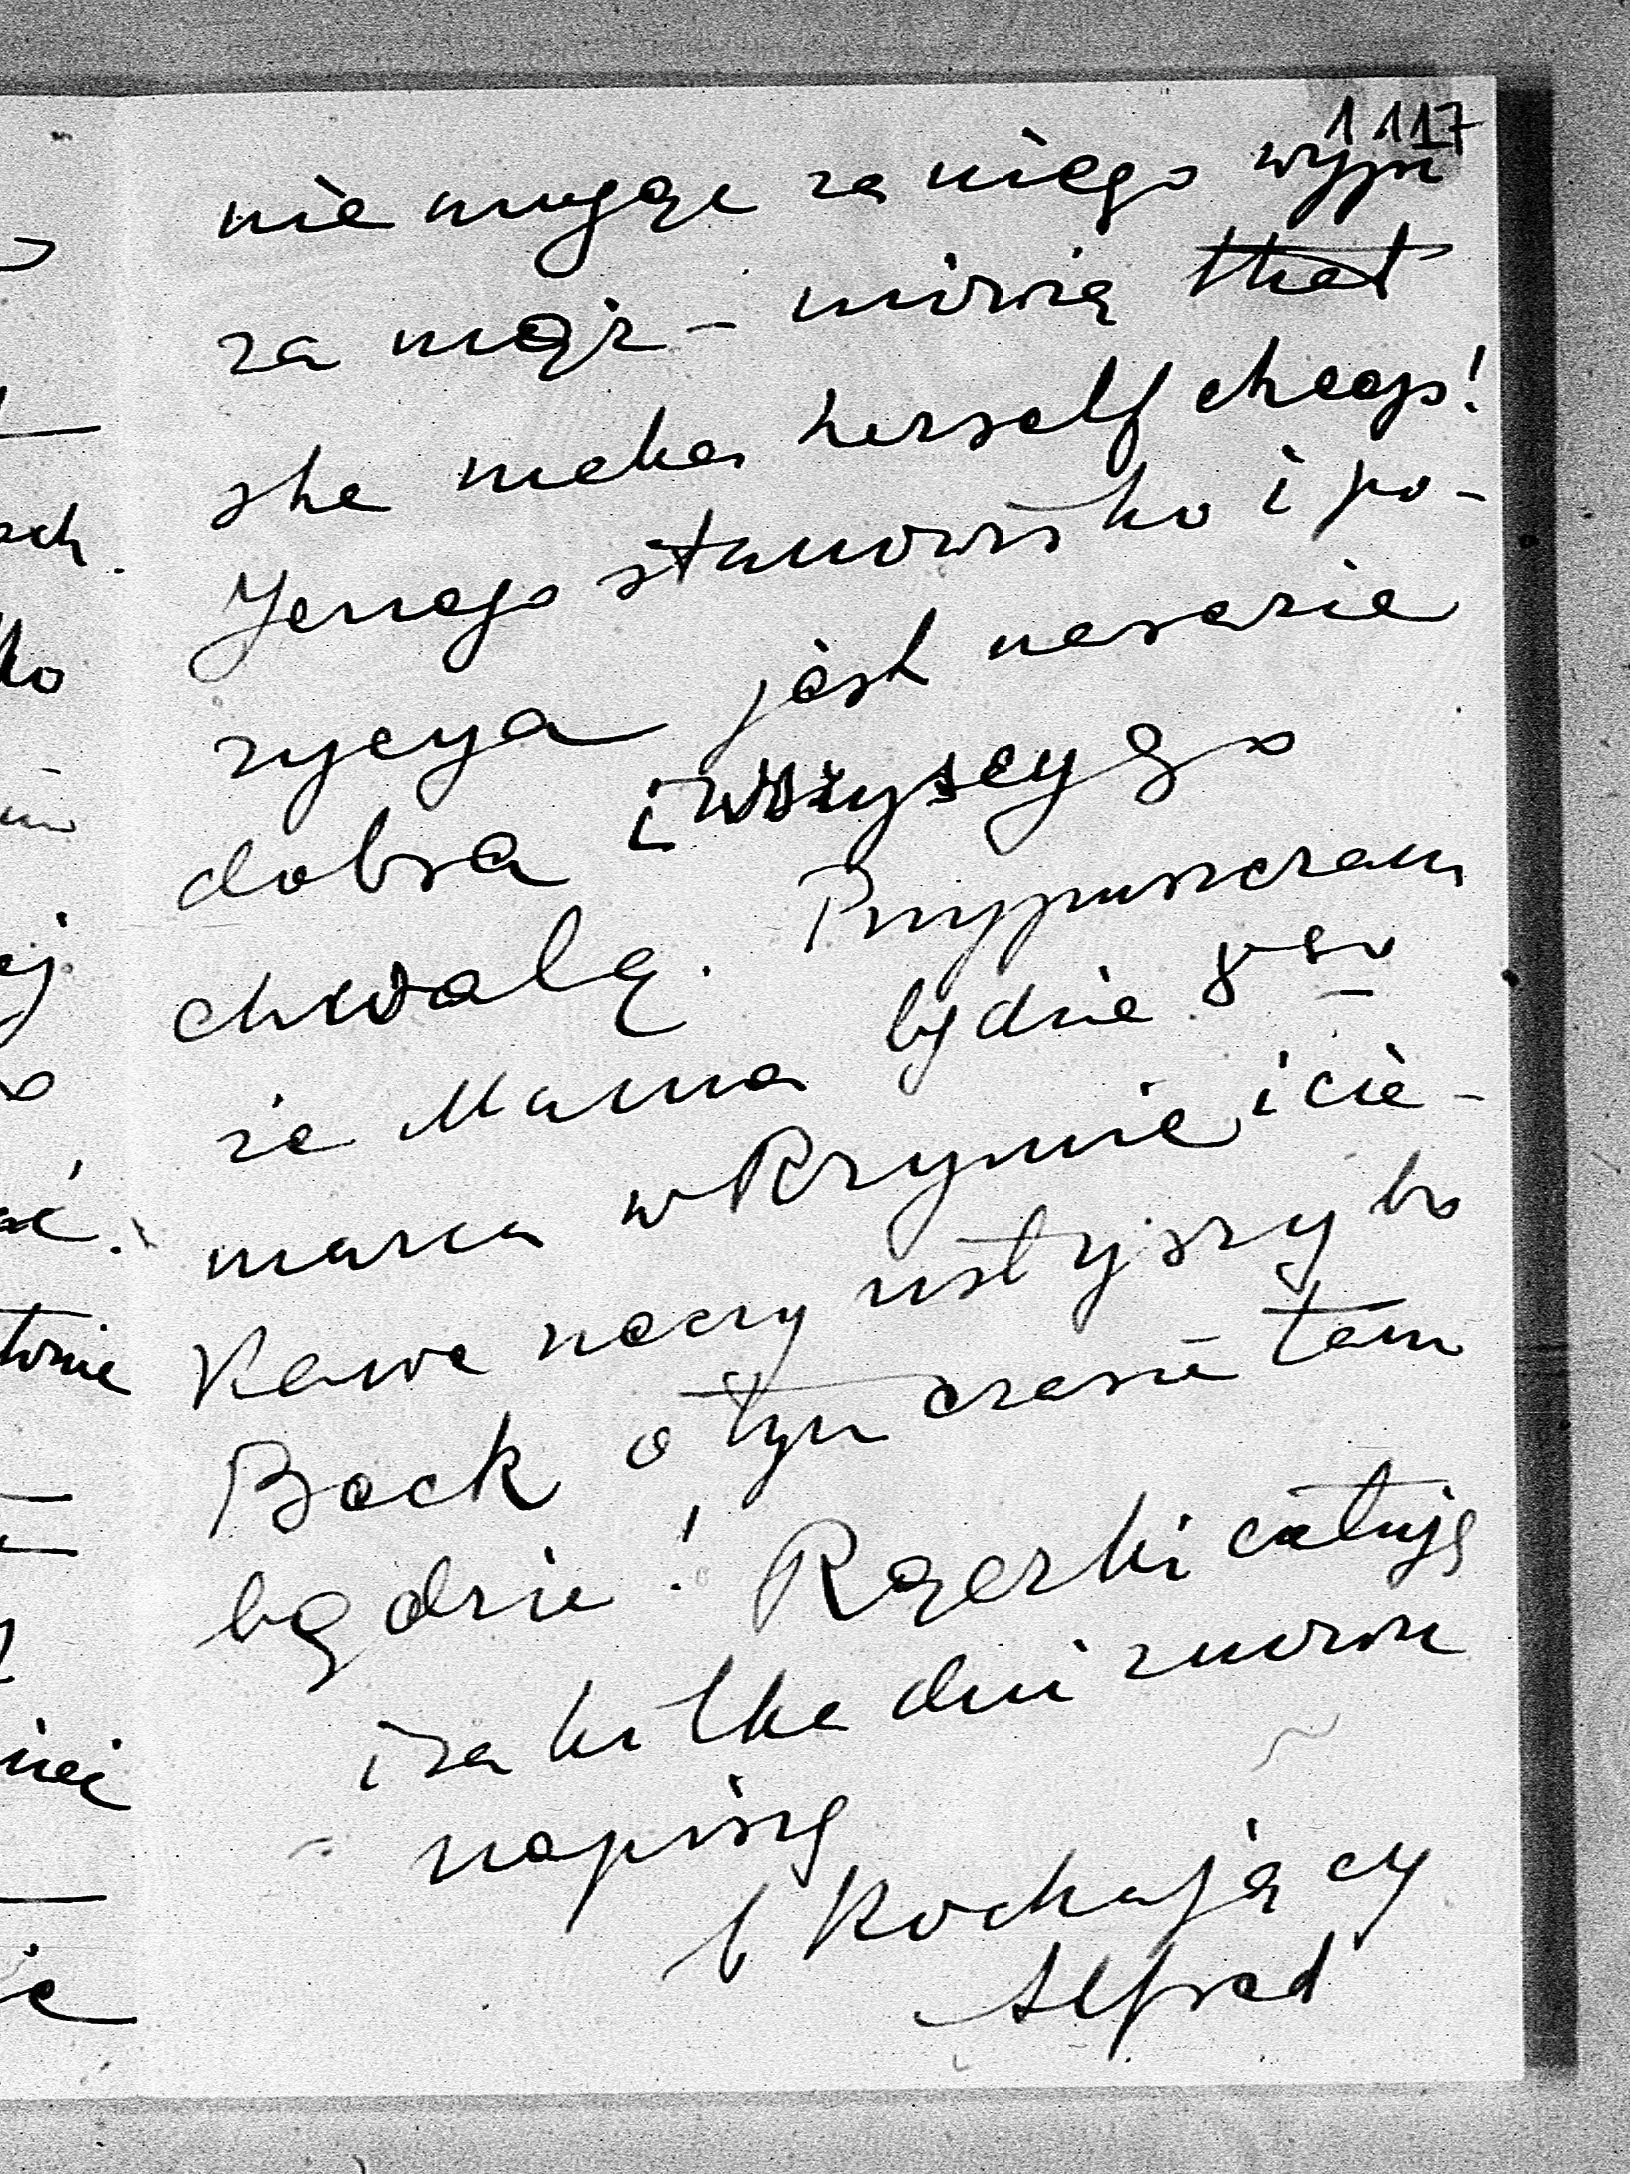 1117
nie mogąc za niego wyjść
za mąż – mówią that
she makes herself cheap!
Jenego stanowisko i po-
zycya jest na razie
dobra i wszyscy go
chwalą. Przypuszczam
że Mama będzie 8go
marca w Rzymie i cie-
kawe rzeczy usłyszy bo
Back o tym czasie tam
będzie! Rączki całuję
i za kilka dni znowu
napiszę
Kochający
Alfred